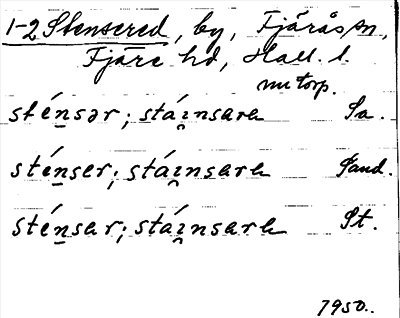 1-2 Stensered, by, Fjärås sn,
Fjäre hd, Hall. l.
nu torp.
sténsər; stái̯nsara Sa.
sténser; stái̯nsara Sand.
sténsar; stái̯nsara St.
1950.